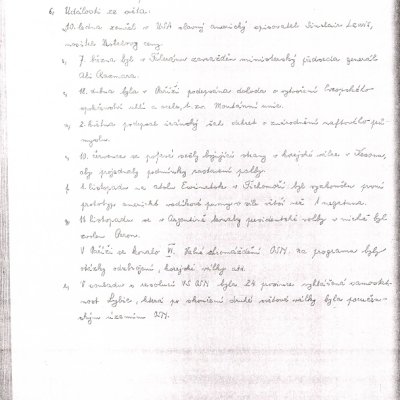 6. Události ze světa.
10. ledna zemřel v USA slavný americký spisovatel Sinclair Lewis,
nositel Nobelovy ceny
7. března byl v Teheránu zavražděn ministerský předseda generál
Ali Razmara.
18. dubna byla v Paříži podepsána dohoda o vytvoření Evropského
společenství uhlí a oceli, t. zv. Montánní unie.
2. května podepsal íránský šach dekret o znárodnění naftového prů-
myslu.
10. července se poprvé sešly bojující strany v korejské válce v Kesonu,
aby projednaly podmínky zastavení palby.
f. 1. listopadu na atolu Eniwetok v Tichomoří byl vyzkoušen první
prototyp americké vodíkové pumy o síle větší než 1 megatuna.
11. listopadu se v Argentině konaly presidentské volby v nichž byl
zvolen Peron.
V Paříži se konalo VI. Valné shromáždění OSN. Na programu byly
otázky odzbrojení, korejské války atd.
V souladu s resolucí VS OSN byla 24. prosince vyhlášena samostat-
nost Lybie, která po skončení druhé světové války byla poručen-
ským územím OSN.